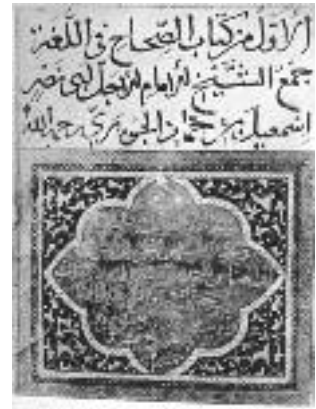 الاول من كتاب الصحاح في اللغة
جمع الشيخ الامام الاجل ابي نصر
اسمعيل بن حماد الجوهري رحمه الله